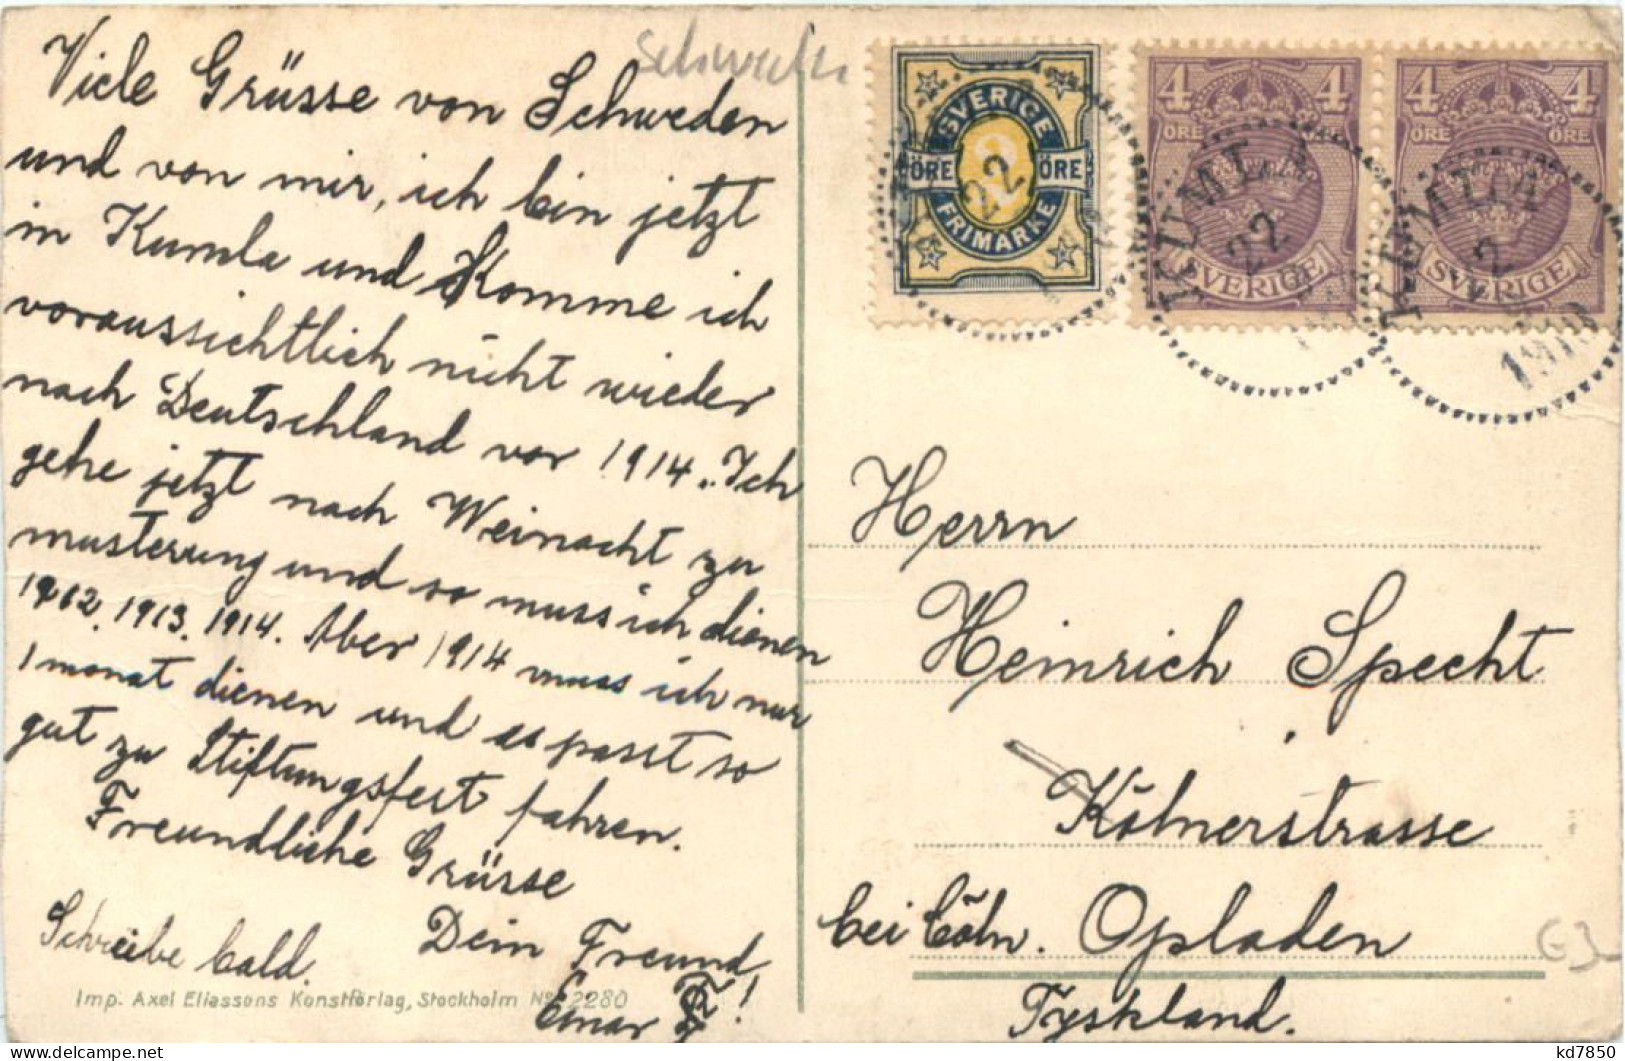 Viele Grüsse von Schweden
und von mir, ich bin jetzt
in Kumla und Komme ich
voraussichtlich nicht wieder
nach Deutschland vor 1914. Ich
gehe jetzt nach Weinacht zu
musterung und so muss ich dienen
1912. 1913. 1914. Aber 1914 muss ich nur
1 monat dienen und es passt so
gut zu Stiftungsfest fahren.
Freundliche Grüsse
Dein Freund
Einar
Schreibe bald.
Imp. Axel Eliassons Konstförlag, Stockholm No 2280
SVERIGE
2
ÖRE ÖRE
FRIMÄRKE
22
4 4
ÖRE ÖRE
SVERIGE
KUMLA
22
4 4
ÖRE ÖRE
SVERIGE
KUMLA
1910
Herrn
Heinrich Specht
Kölnerstrasse
bei Cöln. Opladen
Tyskland.
G3
kd7850